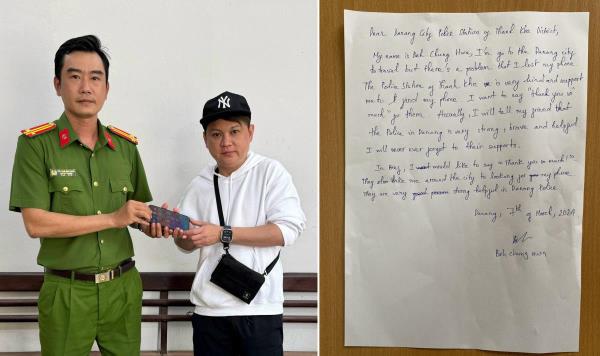 NY
Dear Danang City Police Station of Thanh Khe District,
My name is Bak Chung Hwa, I'm go to the Danang city
to travel but there's a problem that I lost my phone.
The Police Station of Thanh Khe is very kind and support
me to find my phone. I want to say "thank you so
much" for them. Actually, I will tell my friend that
the Police in Danang is very strong, brave and helpful
I will never ever forget to their supports.
In my, I would like to say "Thank you so much!"
They also take me around the city to looking for my phone
They are very strong helpful in Danang Police.
Danang, 7th of March, 2024
Bak chung hwa